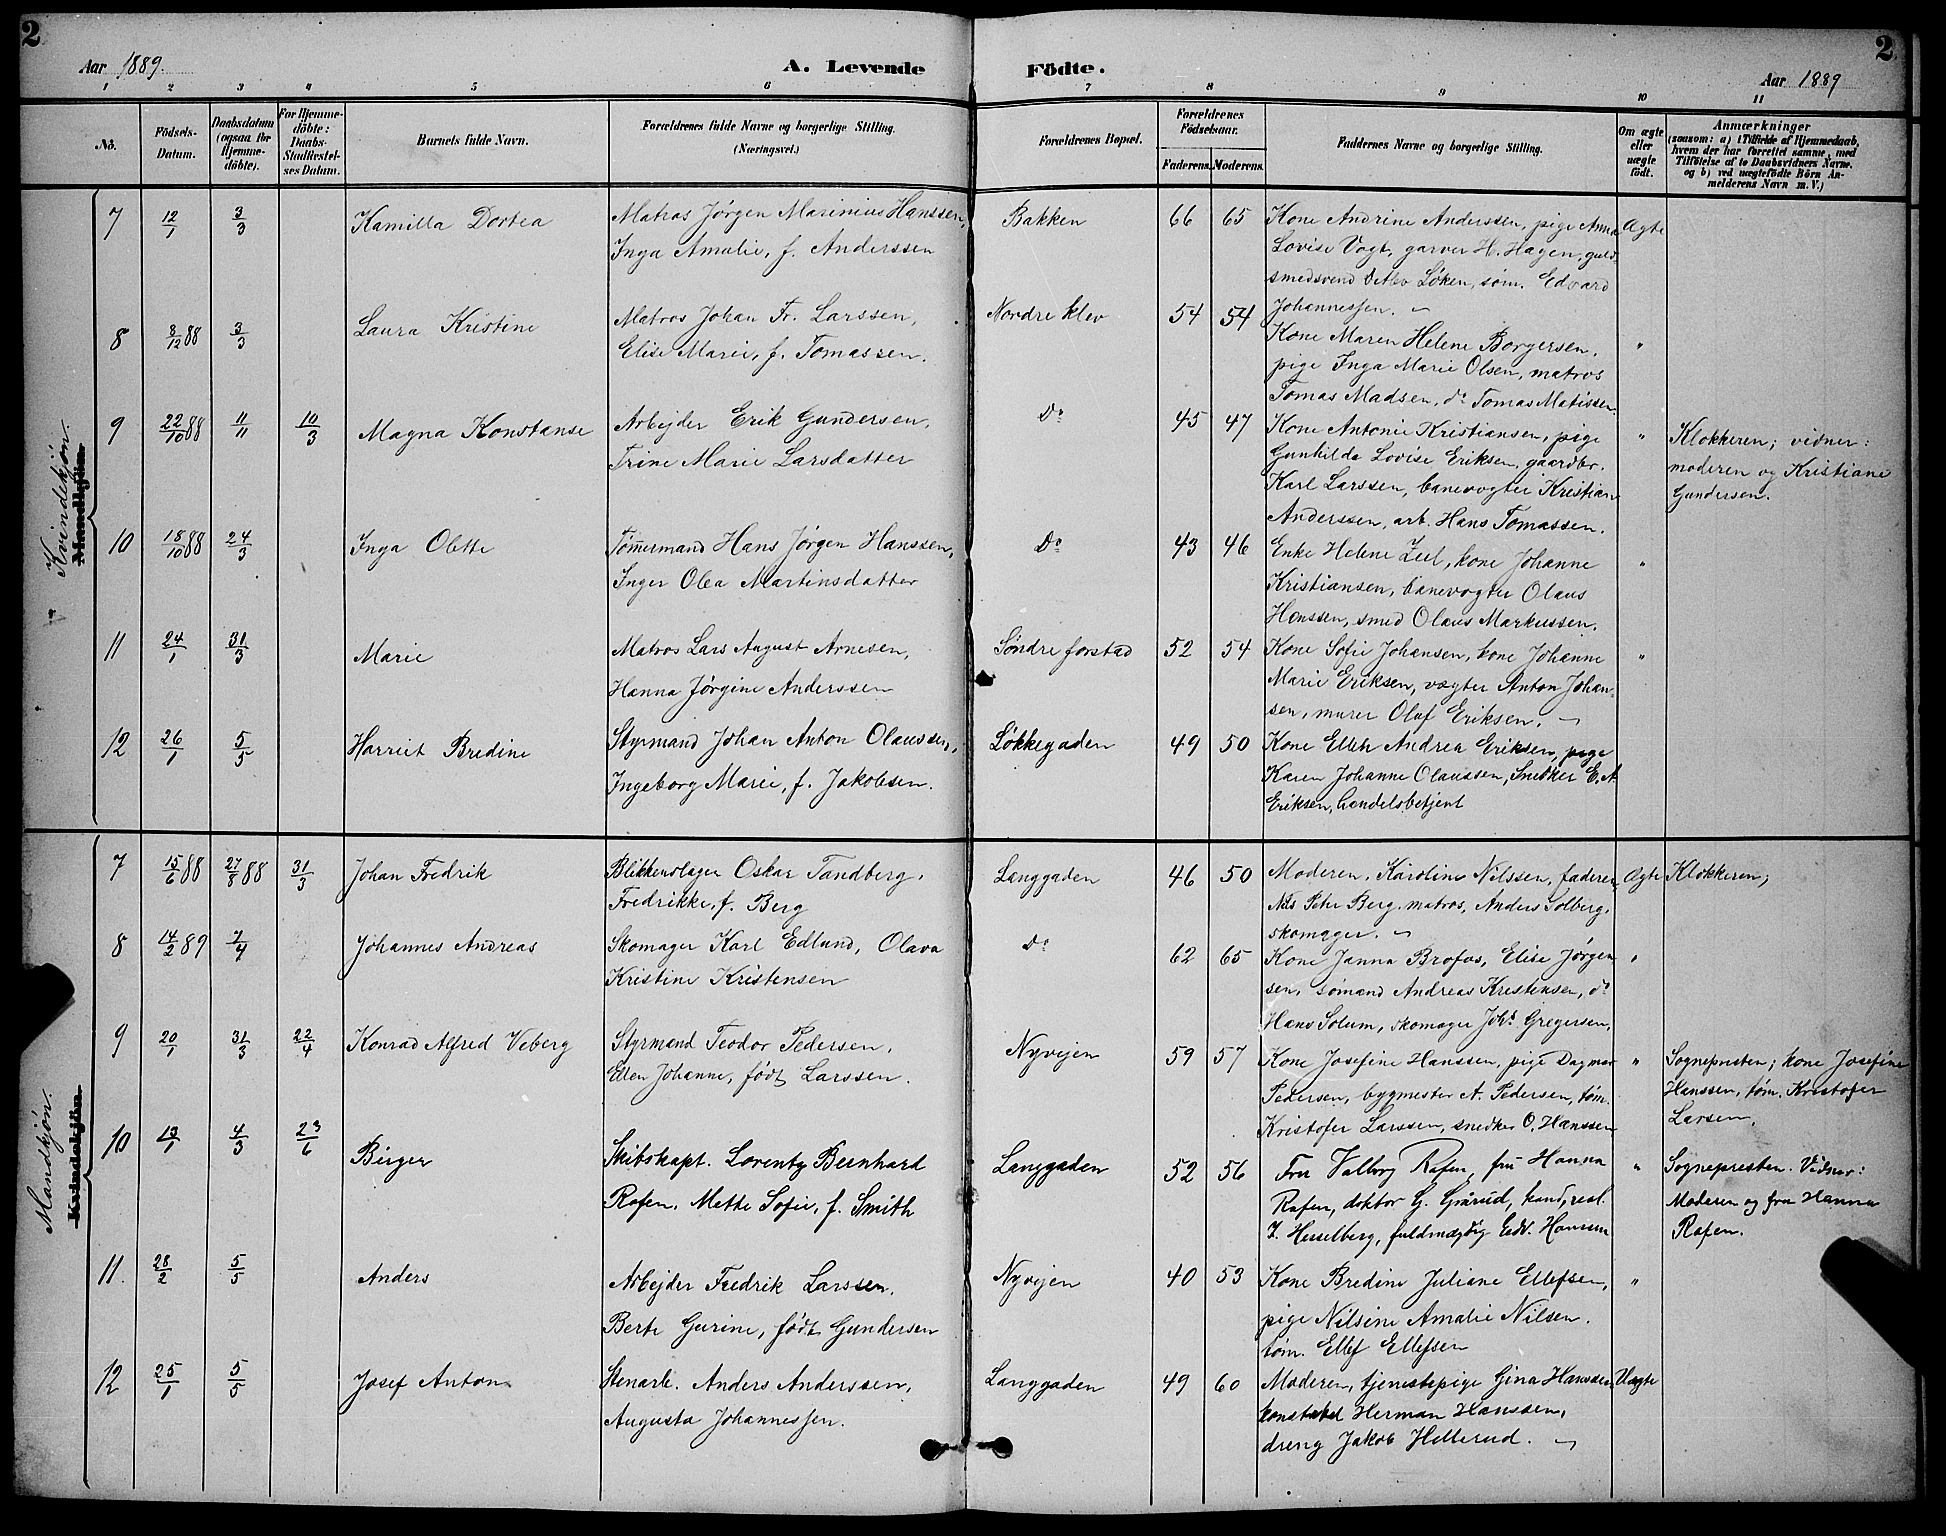 2
2
Aar 1889.
A. Levende Födte.
Aar 1889
1 2 3 4 5 6 7 8 9 10 11
No.
Födsels-Datum.
Daabsdatum (ogsaa for Hjemmedöbte).
For Hjemmedöbte: Daabs-Stadfæstelses Datum.
Barnets fulde Navn.
Forældrenes fulde Navne og borgerlige Stilling.
(Næringsvei.)
Forældrenes Bopæl.
Forældrenes Födselsaar.
Faderens. Moderens.
Faddernes Navne og borgerlige Stilling.
Om ægte eller uægte födt.
Anmærkninger
(saasom: a) i Tilfælde af Hjemmedaab, hvem der har forrettet samme, med Tilföielse af to Daabsvidners Navne, og b) ved uægtefödte Börn Anmelderens Navn m. V.)
Kvindekjön.
Mandkjön.
7 12/1 3/3 Kamilla Dortea
Matros Jørgen Marinius Hanssen,
Inga Amalie, f. Anderssen
Bakken 66 65
Kone Andrine Anderssen, pige Anna
Lovise Vogt, garver H. Hagen, guld-
smedsvend Detlev Løken, søm. Edvard
Johannessen.
Ægte
8 8/12 88 3/3 Laura Kristine
Matros Johan Fr. Larssen,
Elise Marie, f. Tomassen.
Nordre klev 54 54
Kone Maren Helene Borgersen,
pige Inga Marie Olsen, matros
Tomas Madsen, do Tomas Matissen.
"
9 22/10 88 11/11 10/3 Magna Konstanse
Arbejder Erik Gundersen,
Trine Marie Larsdatter
Do 45 47
Kone Antonie Kristiansen, pige
Gunhilda Lovise Eriksen, gaardbr.
Karl Larssen, banevogter Kristian
Anderssen, arb. Hans Tomassen.
"
Klokkeren; vidner:
moderen og Kristiane
Gundersen.
10 18/10 88 24/3 Inga Olette
Tømmermand Hans Jørgen Hanssen,
Inger Olea Martinsdatter
Do 43 46
Enke Helene Zeel, kone Johanne
Kristiansen, banevogter Olaus
Hanssen, smed Olaus Markussen.
"
11 24/1 31/3 Marie
Matros Lars August Arnesen,
Hanna Jørgine Anderssen
Søndre forstad 52 54
Kone Sofie Johansen, kone Johanne
Marie Eriksen, vægter Anton Johan-
sen, murer Olaf Eriksen.
"
12 26/1 5/5 Harriet Bredine
Styrmand Johan Anton Olaussen,
Ingeborg Marie, f. Jakobsen.
Løkkegaden 49 50
Kone Ellen Andrea Eriksen, pige
Karen Johanne Olaussen, Snedker E. A.
Eriksen, handelsbetjent
Mandkjön.
Kvindekjön.
7 15/6 88 27/8 88 31/3 Johan Fredrik
Blikkenslager Oskar Tandberg,
Fredrikke, f. Berg
Langgaden 46 50
Moderen, Karoline Nilssen, faderen,
Nils Petr Berg, matros, Anders Solberg,
skomager.
Ægte
Klokkeren;
8 14/2 89 7/4 Johannes Andreas
Skomager Karl Edlund, Olava
Kristine Kristensen
Do 62 65
Kone Janna Brofos, Elise Jørgen
sen, sømand Andreas Kristensen, do
Hans Solum, skomager Johs. Gregersen,
"
9 20/1 31/3 22/4 Konrad Alfred Veberg
Styrmand Teodor Pedersen,
Ellen Johanne, født Larssen.
Nyvejen 59 57
Kone Josefine Hanssen, pige Dagmar
Pedersen, bygmester A. Pedersen, tøm.
Kristofer Larssen, snedker O. Hanssen
"
Sognepresten; kone Josefine
Hanssen, tøm. Kristofer
Larsen.
10 13/1 4/3 23/6 Birger
Skibskapt. Lorentz Bernhard
Rafen, Mette Sofie, f. Smith
Langgaden 52 56
Fru Valborg Rafen, fru Hanna
Rafen, doktor G. Gjørud, kand. real.
I. Hesselberg, fuldmægtig Edv. Hansen
"
Sognepresten. Vidner:
Moderen og fru Hanna
Rafen.
11. 28/2 5/5 Anders
Arbejder Fredrik Larssen,
Berte Gurine, født Gundersen
Nyvejen 40 53
Kone Bredine Juliane Ellefsen,
pige Nilsine Amalie Nilsen.
tøm. Ellef Ellefsen
"
12 25/1 5/5 Josef Anton
Stenarb. Anders Anderssen,
Augusta Johannessen.
Langgaden 49 60
Moderen, tjenestepige Gina Hanssen,
konstabel Herman Hanssen,
dreng Jakob Hellerud.
Uægte